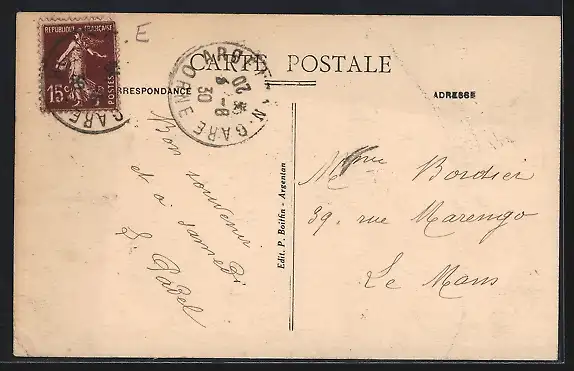 RÉPUBLIQUE FRANÇAISE
15c
POSTES
E
CARTE POSTALE
RRESPONDANCE
ADRESSE
GARE
ORNE
20
30
GARE
Bon souvenir
et à samedi
Edit. P. Boilfin - Argentan
Mme Bordier
39, rue Marengo
Le Mans